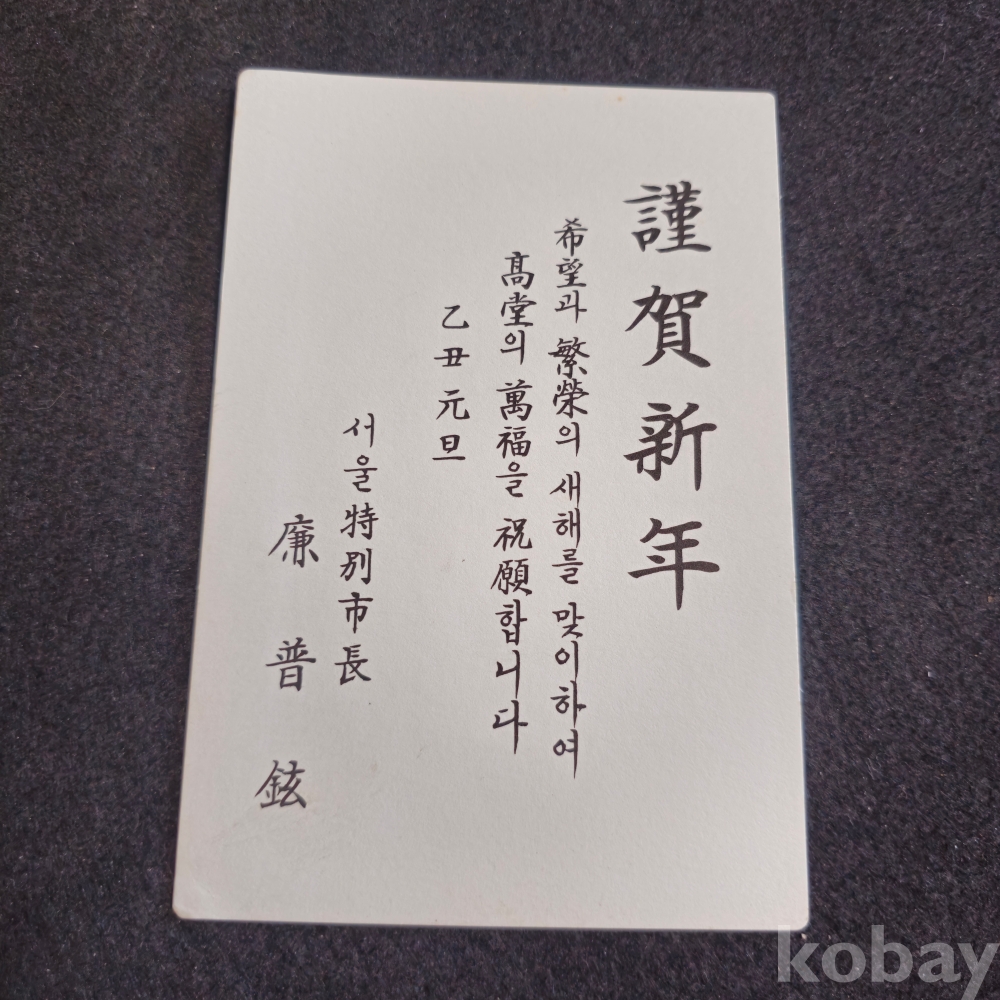 謹賀新年
希望과 繁榮의 새해를 맞이하여
高堂의 萬福을 祝願합니다
乙丑元旦
서울特別市長
廉普鉉
kobay